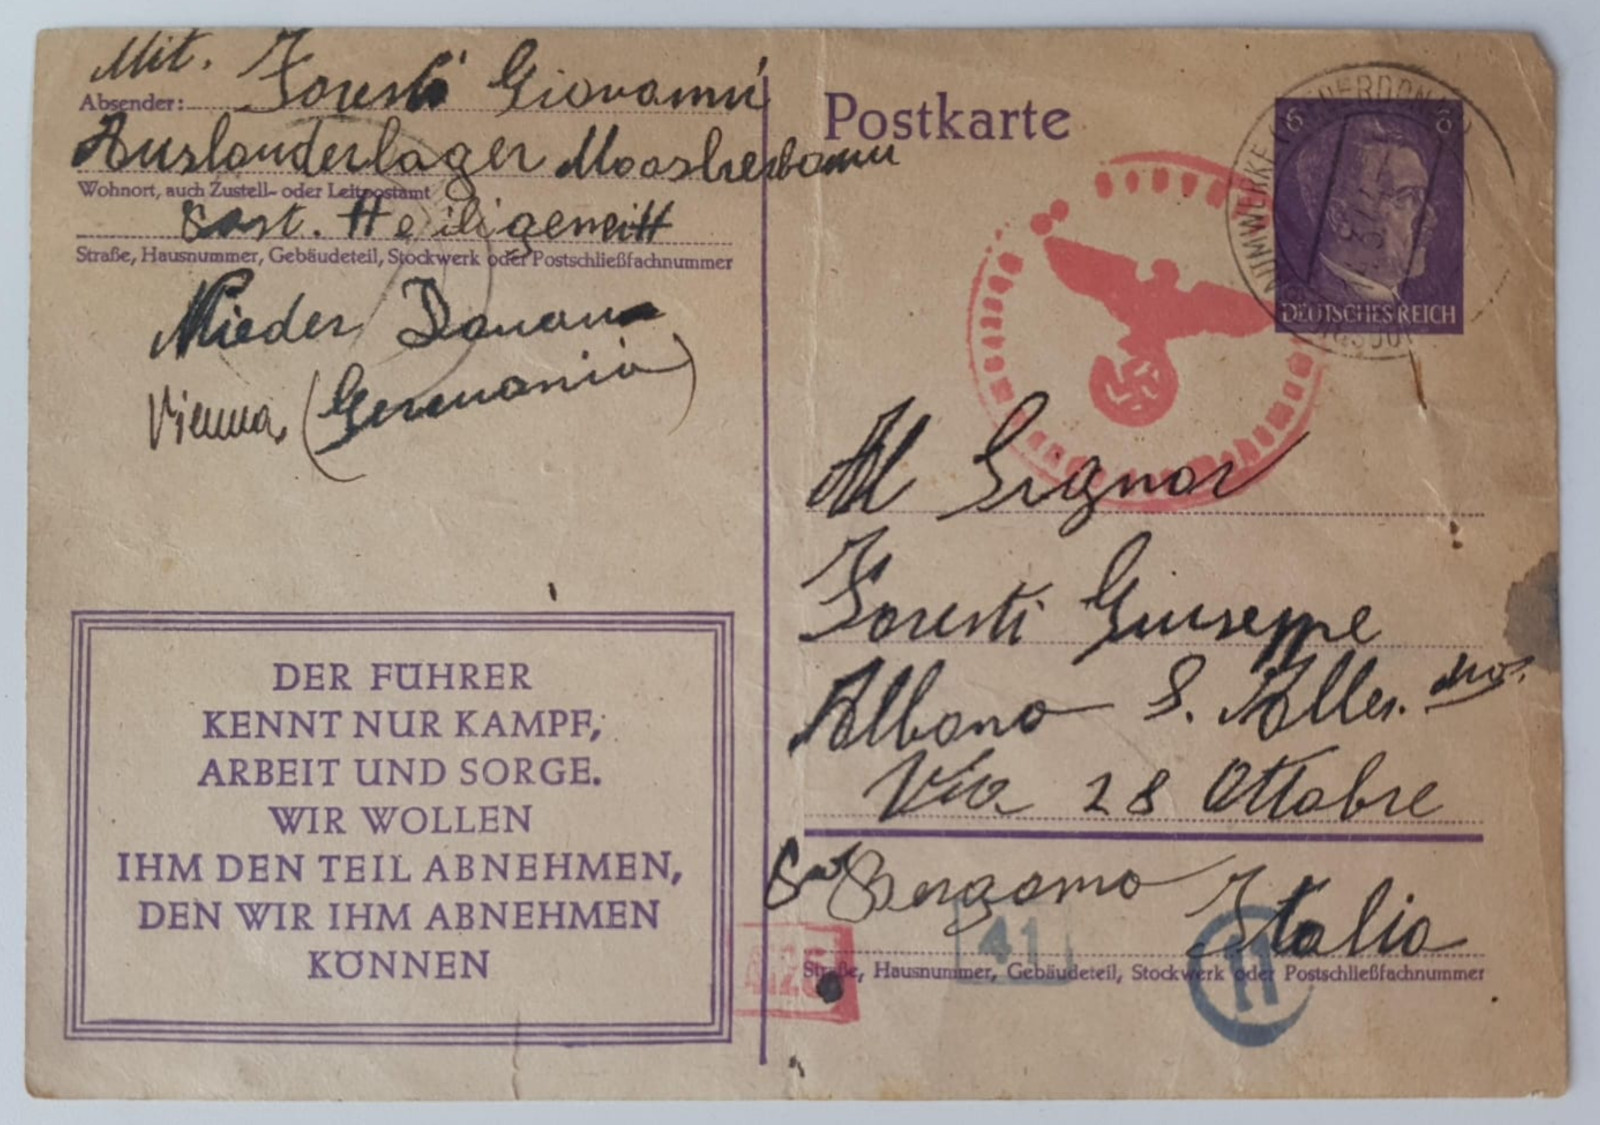 Mit. Foresti Giovanni
Absender:
Auslanderlager Moosbierbaum
Wohnort, auch Zustell- oder Leitpostamt
Post. Heiligeneitt
Straße, Hausnummer, Gebäudeteil, Stockwerk oder Postschließfachnummer
Nieder Donau
Vienna (Germania)
DER FÜHRER
KENNT NUR KAMPF,
ARBEIT UND SORGE.
WIR WOLLEN
IHM DEN TEIL ABNEHMEN,
DEN WIR IHM ABNEHMEN
KÖNNEN
Postkarte
6 6
DEUTSCHES REICH
Al Signor
Foresti Giuseppe
Albano S. Aless.dro.
Via 28 Ottobre
Bergamo
Italia
41
11
Straße, Hausnummer, Gebäudeteil, Stockwerk oder Postschließfachnummer